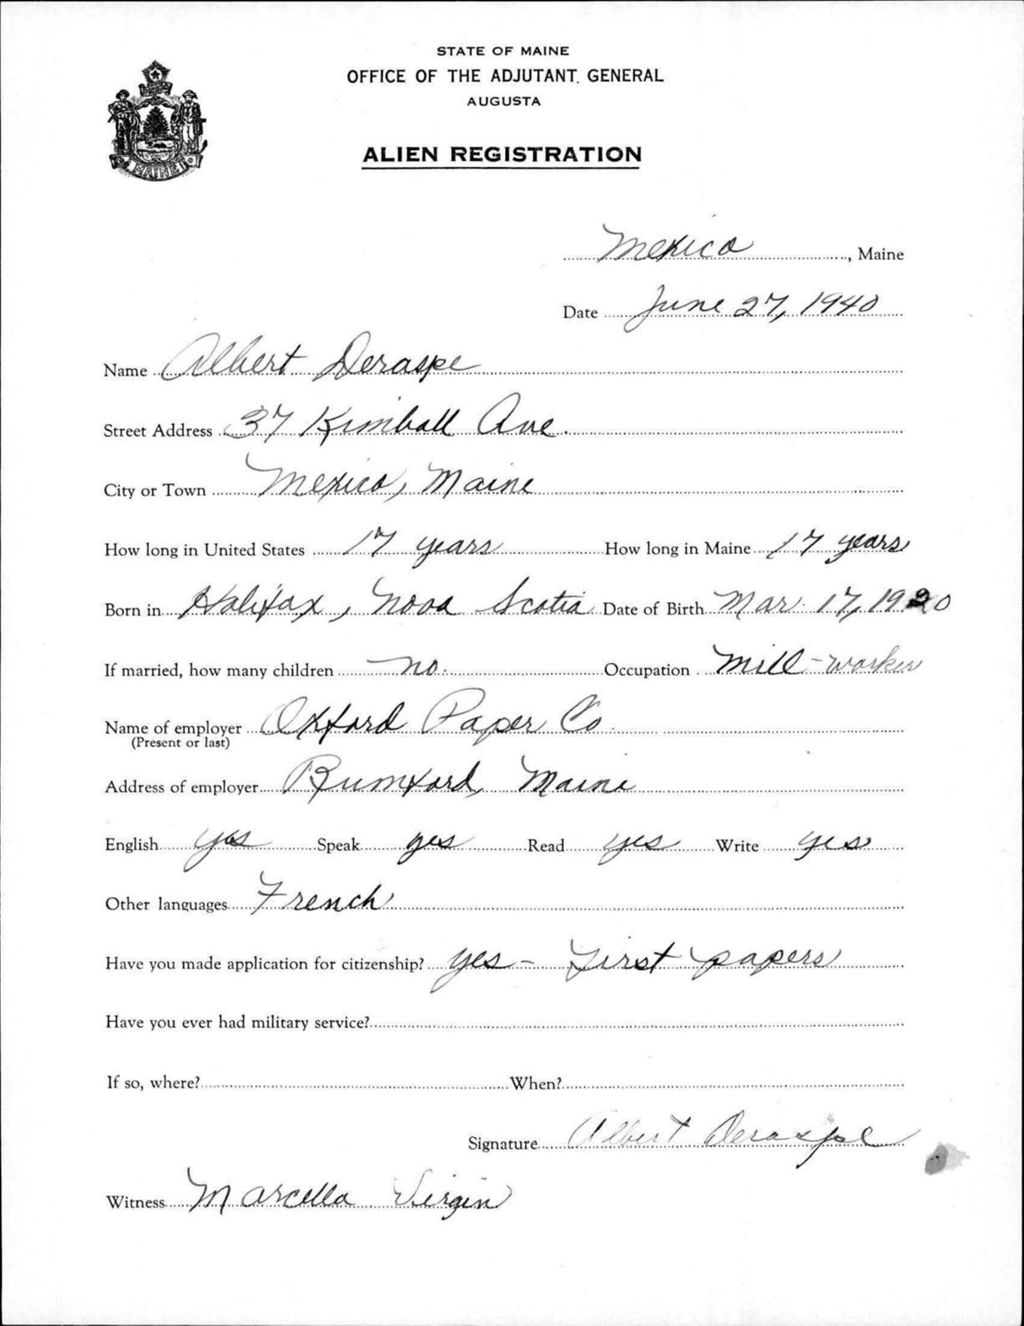 STATE OF MAINE
OFFICE OF THE ADJUTANT GENERAL
AUGUSTA
ALIEN REGISTRATION
MAINE
Mexico, Maine
Date June 27, 1940
Name Albert Deraspe
Street Address 37 Kimball Ave.
City or Town Mexico, Maine
How long in United States 17 years How long in Maine 17 years
Born in Halifax, Nova Scotia Date of Birth Mar. 17, 1920
If married, how many children no. Occupation Mill-worker
Name of employer Oxford Paper Co.
(Present or last)
Address of employer Rumford, Maine
English yes Speak yes Read yes Write yes
Other languages French
Have you made application for citizenship? yes - First papers
Have you ever had military service?
If so, where? When?
Signature Albert Deraspe
Witness Marcella Virgin